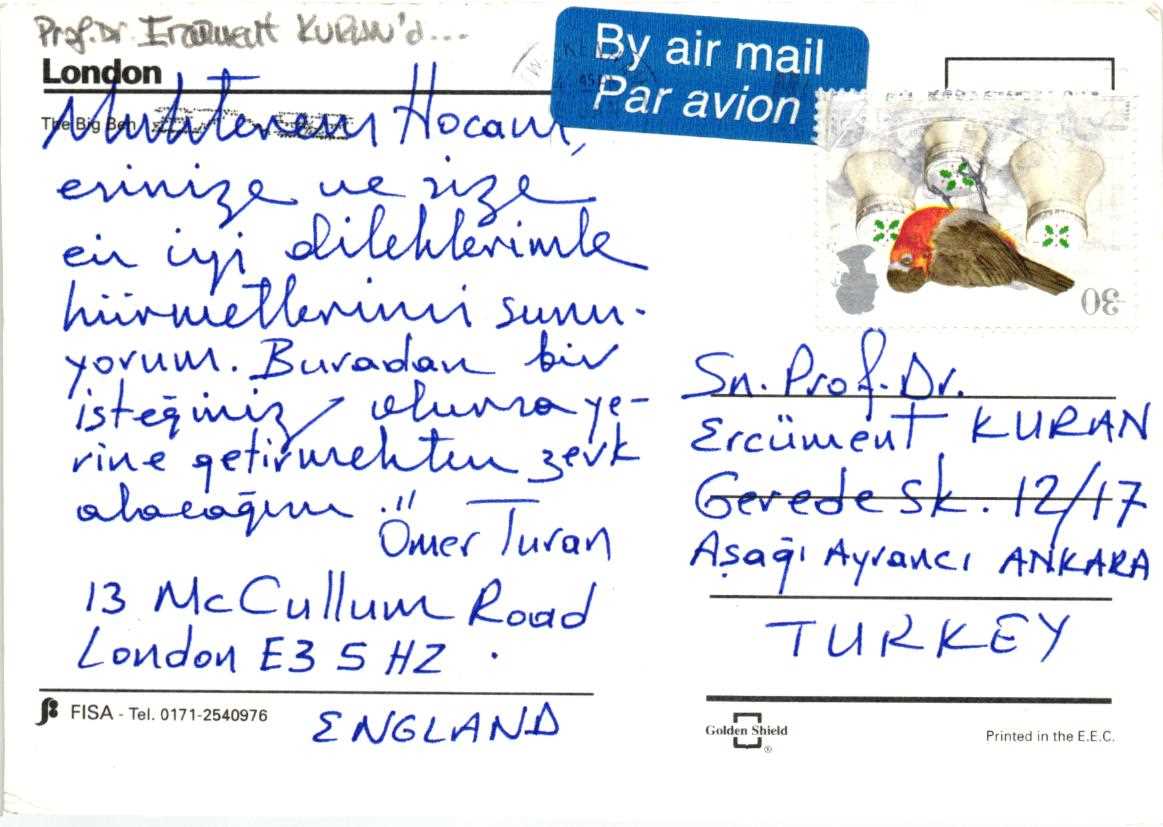 Prof. Dr. Ercüment KURAN'a ...
London
The Big Ben
Muhterem Hocam,
esinize ve size
en iyi dileklerimle
hürmetlerimi sunu-
yorum. Buradan bir
isteğiniz olursa ye-
rine getirmekten zevk
alacağım.
Ömer Turan
13 McCullum Road
London E3 5 HZ.
ENGLAND
FISA - Tel. 0171-2540976
By air mail
Par avion
30
Sn. Prof. Dr.
Ercüment KURAN
Gerede Sk. 12/17
Aşağı Ayrancı ANKARA
TURKEY
Golden Shield
Printed in the E.E.C.